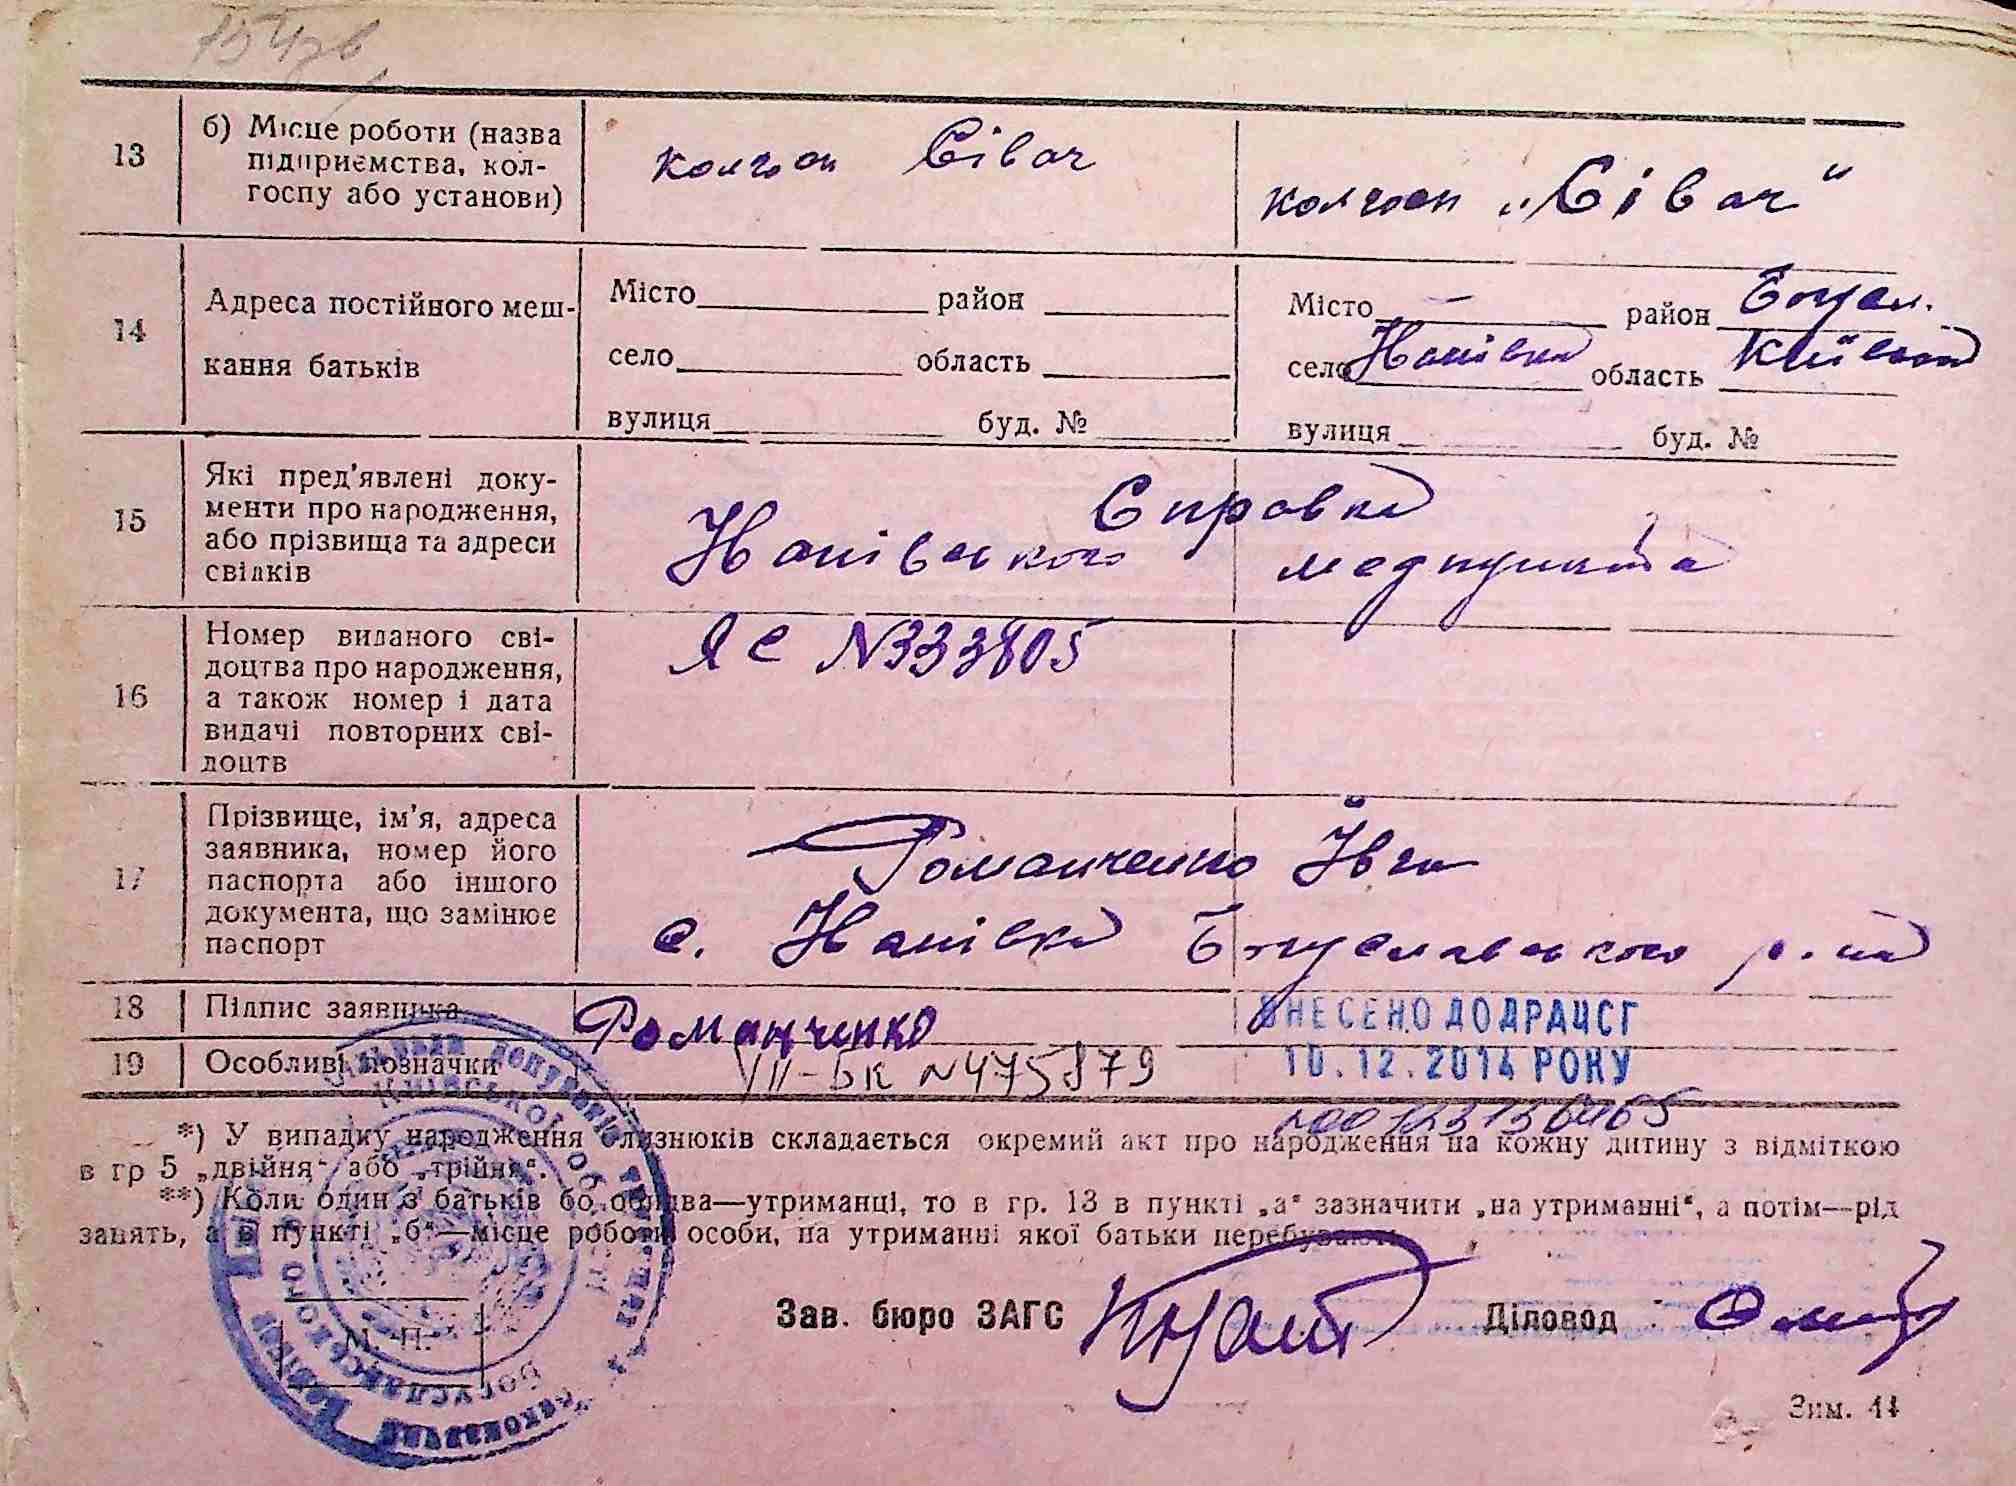 13
б) Місце роботи (назва
підприємства, кол-
госпу або установи)
колгосп Сівач
колгосп „Сівач"
14
Адреса постійного меш-
кання батьків
Місто район
село область
вулиця буд. №
Місто — район Богусл.
село Напівка область Київська
вулиця буд. №
15
Які пред'явлені доку-
менти про народження,
або прізвища та адреси
свідків
Справка
Напівського медпункта
16
Номер виданого сві-
доцтва про народження,
а також номер і дата
видачі повторних сві-
доцтв
ЯС N333805
17
Прізвище, ім'я, адреса
заявника, номер його
паспорта або іншого
документа, що замінює
паспорт
Романченко
с. Напівка Богуславського р.на
18
Підпис заявника
Романченко
ВНЕСЕНО ДО ДРАЦСГ
19
Особливі позначки
III-БК N475879
10.12.2014 РОКУ
*) У випадку народження близнюків складається окремий акт про народження на кожну дитину з відміткою
в гр 5 „двійня“ або „трійня“.
**) Коли один з батьків або обидва—утриманці, то в гр. 13 в пункті „а“ зазначити „на утриманні“, а потім—рід
занять, а в пункті „б“—місце роботи особи, на утриманні якої батьки перебувають.
М. П.
Зав. бюро ЗАГС
Діловод
Зим. 44